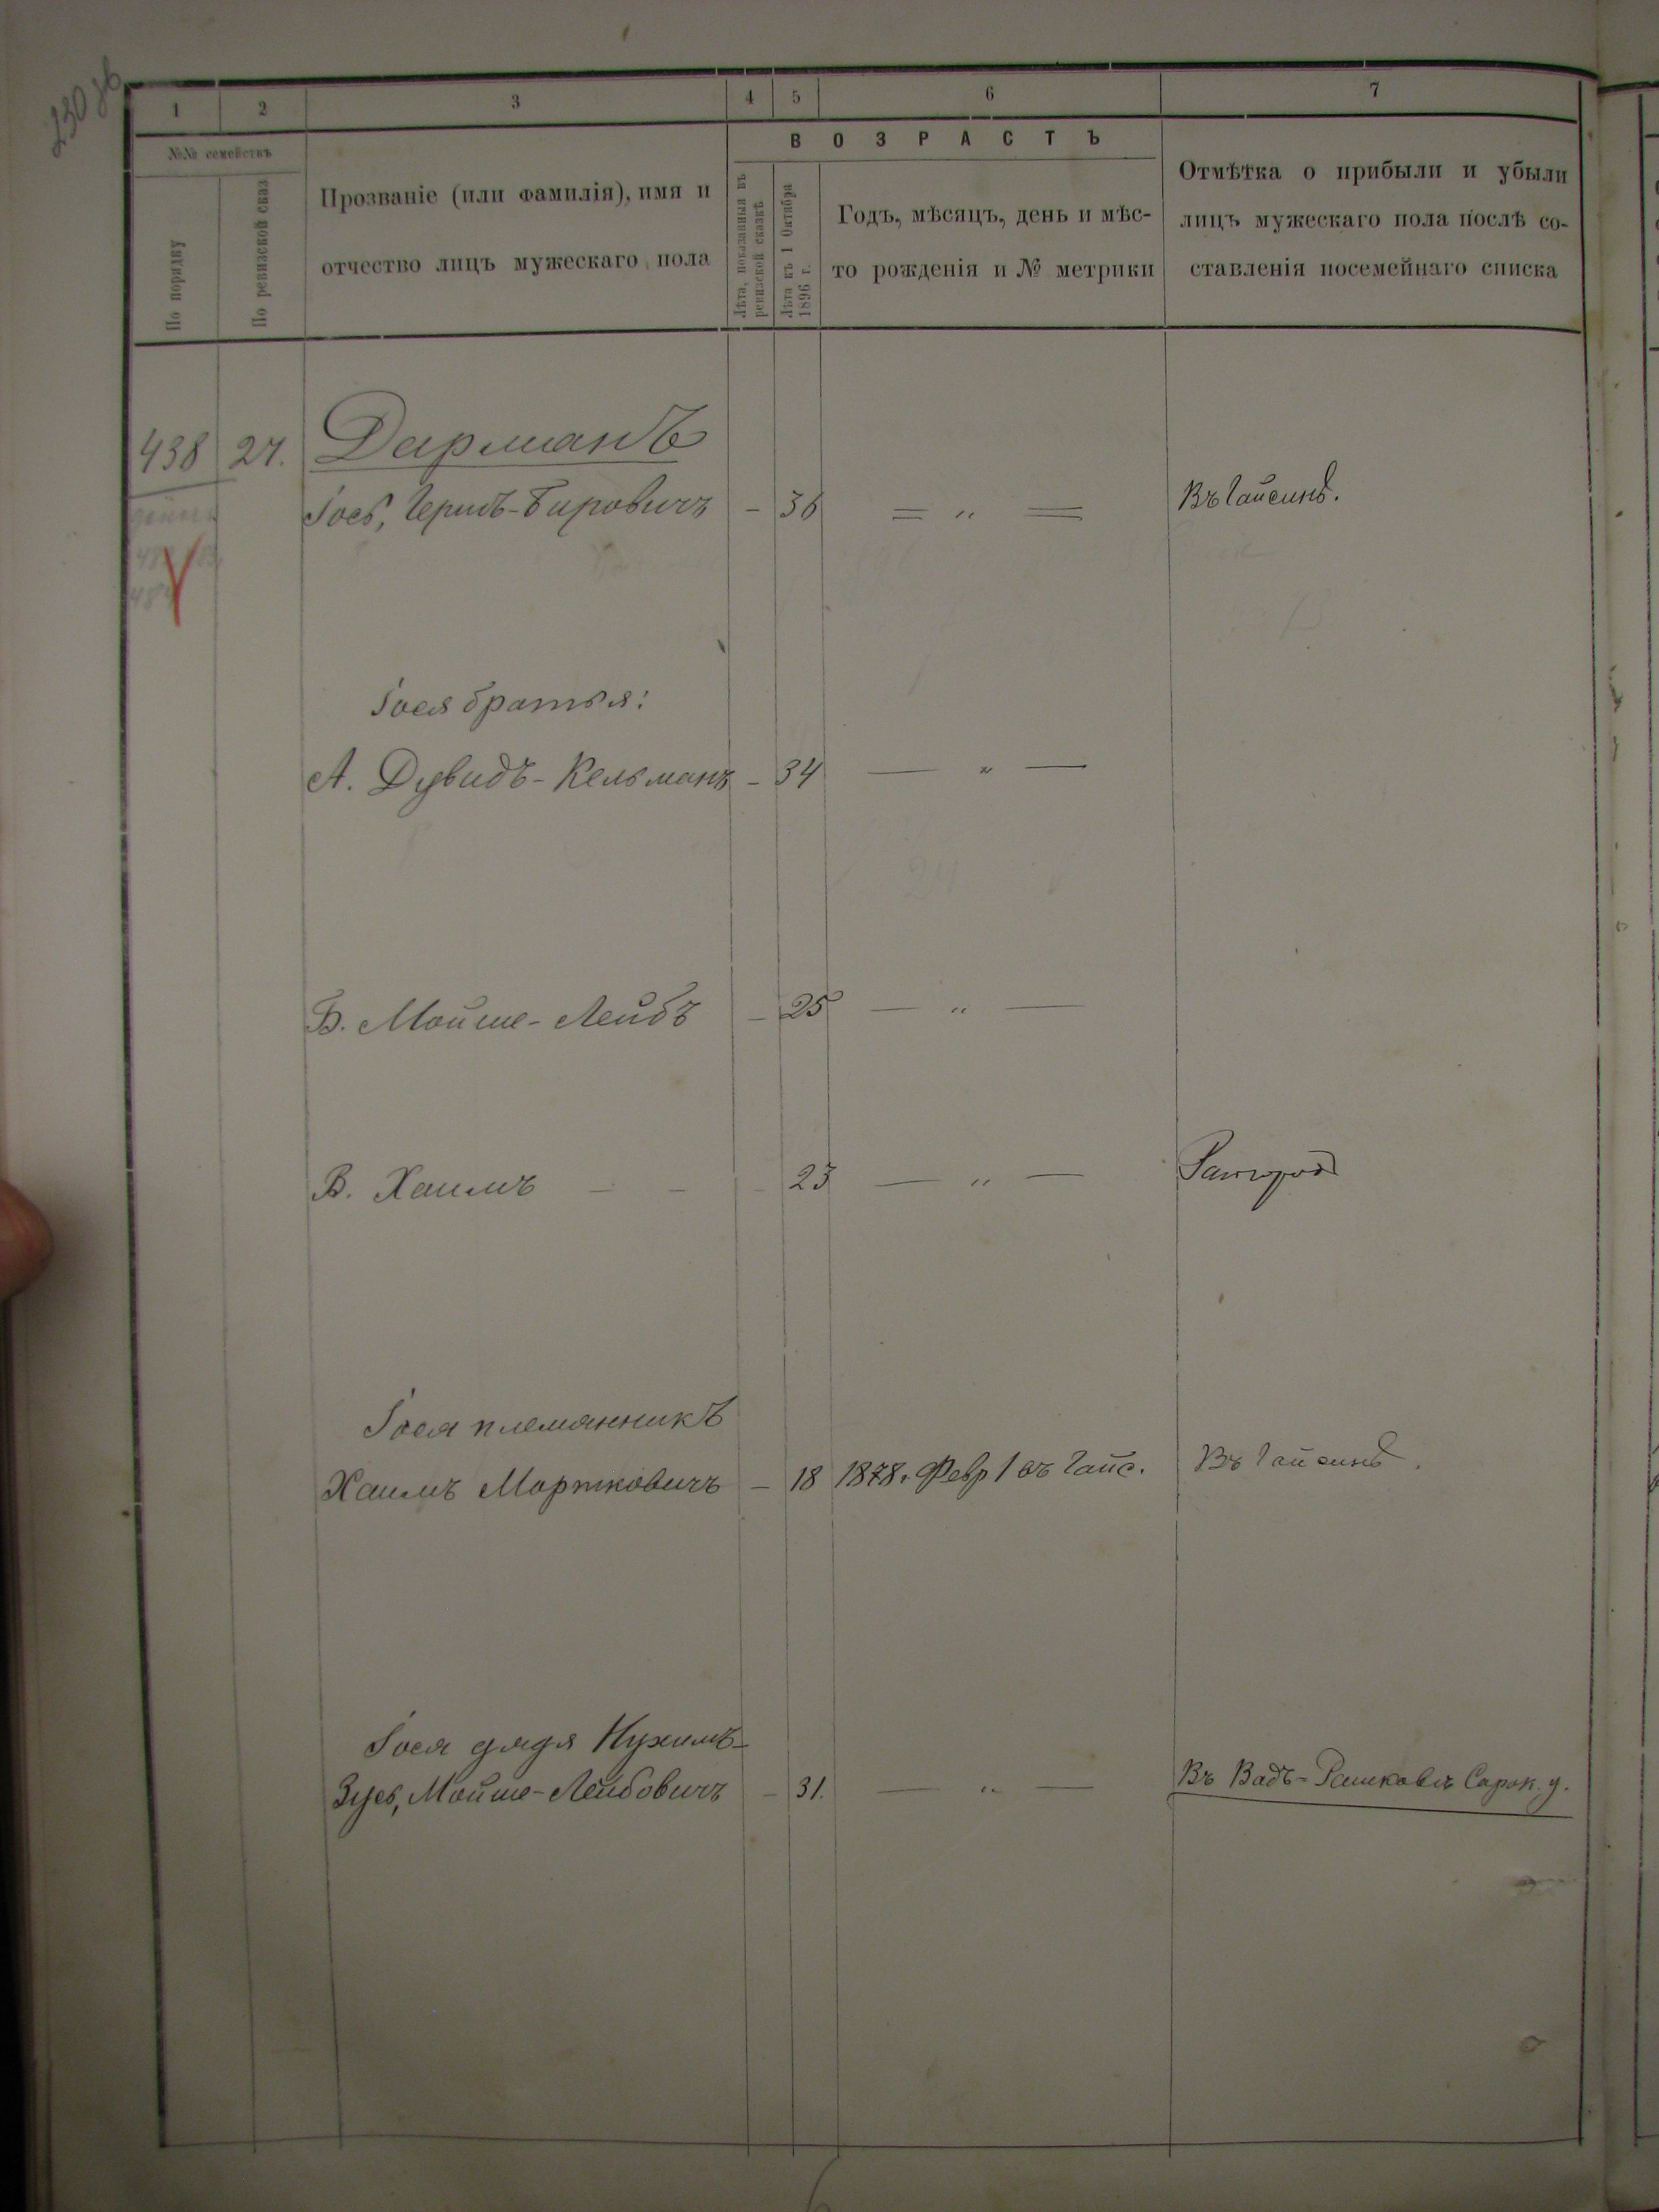 1 2 3 4 5 6 7
№№ семействъ
По порядку
По ревизской сказ
Прозваніе (или фамилія), имя и
отчество лицъ мужескаго пола
ВОЗРАСТЪ
Лѣта, показанныя въ
ревизской сказкѣ
Лѣта къ 1 Октября
1896 г.
Годъ, мѣсяцъ, день и мѣс-
то рожденія и № метрики
Отмѣтка о прибыли и убыли
лицъ мужескаго пола послѣ со-
ставленія посемейнаго списка
438 27. Дарманъ
Іось, Герш-Бировичъ - 36 = " = Въ Гайсинѣ.
Іося братья:
А. Дувидъ-Кельманъ - 34 — " —
Б. Мойше-Лейбъ - 25 — " —
В. Хаимъ - - - 23 — " —
Іося племянникъ
Хаимъ Мортковичъ - 18 1878. Февр 1 въ Гайс. Въ Гайсинѣ.
Іося дядя Нухимъ-
Зусь, Мойше-Лейбовичъ - 31. — " — Въ Вадъ-Рашковѣ Сорок. у.